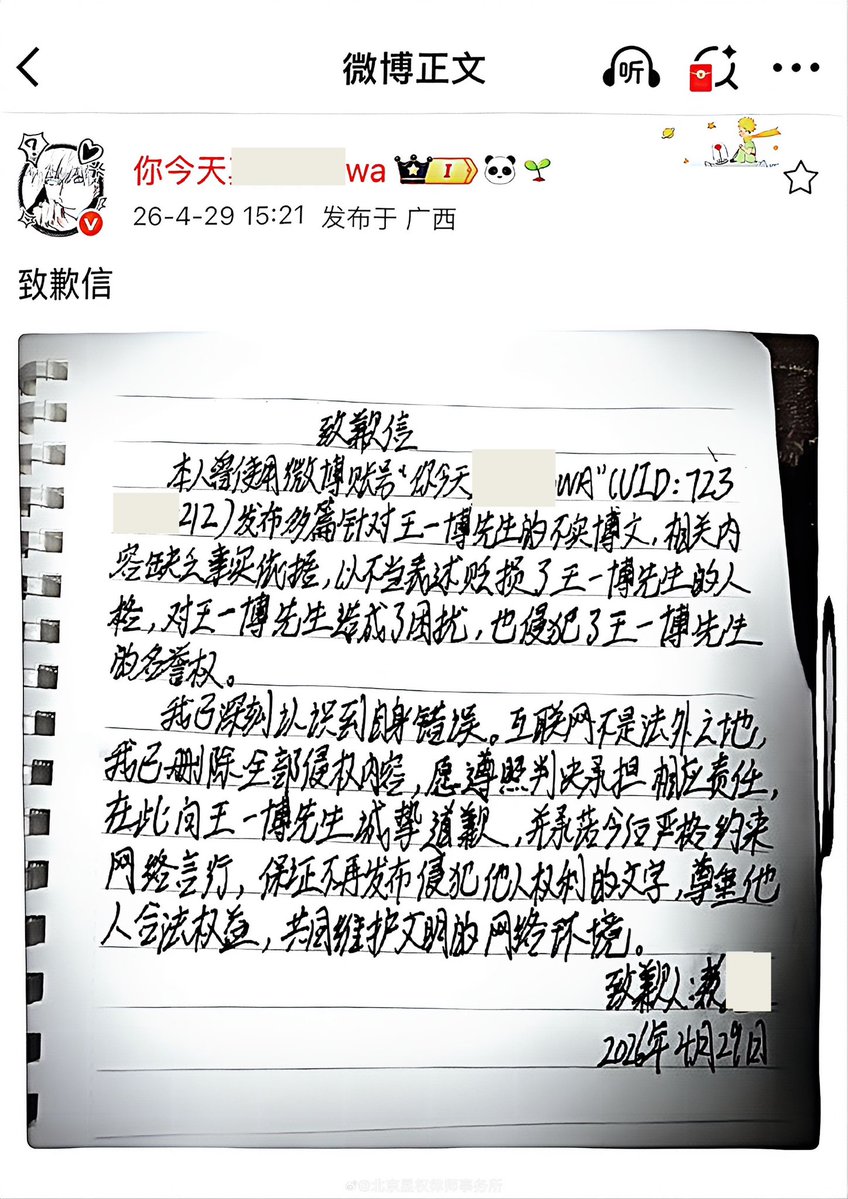 微博正文
听
你今天 wa I
26-4-29 15:21 发布于 广西
致歉信
致歉信
本人曾使用微博账号“你今天 WA”(UID:723
212)发布多篇针对王一博先生的不实博文,相关内
容缺乏事实依据,以不当表述贬损了王一博先生的人
格,对王一博先生造成了困扰,也侵犯了王一博先生
的名誉权。
我已深刻认识到自身错误。互联网不是法外之地,
我已删除全部侵权内容,愿遵照判决承担相应责任,
在此向王一博先生诚挚道歉,并承诺今后严格约束
网络言行,保证不再发布侵犯他人权利的文字,尊重他
人合法权益,共同维护文明的网络环境。
致歉人:
2026年4月29日
@北京星权律师事务所